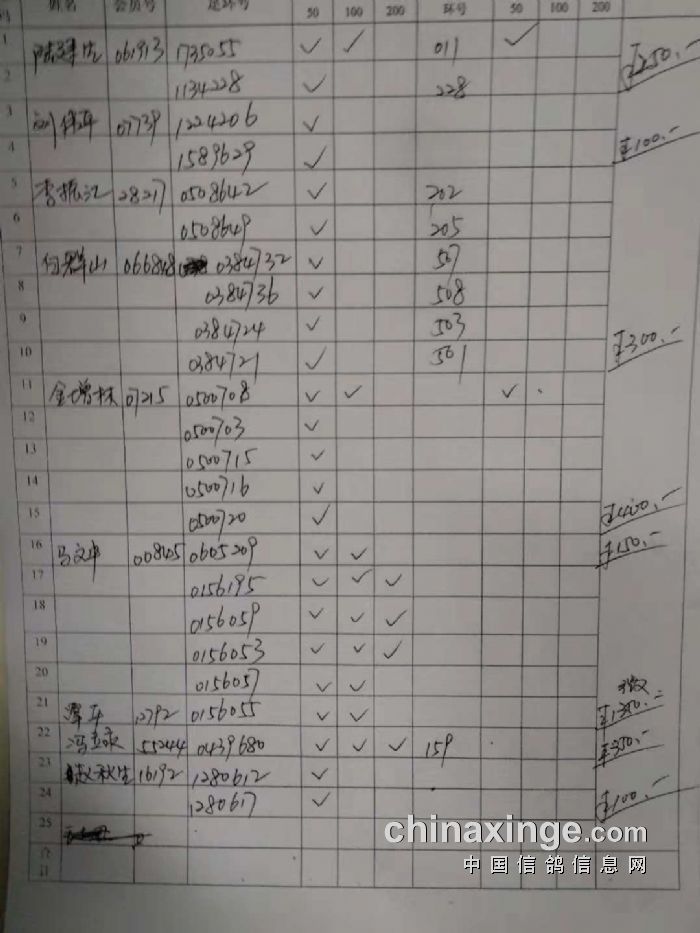 姓名 会员号 足环号 50 100 200 环号 50 100 200
1 061913 1735055 ✓ ✓ 011 ✓
2 1134228 ✓ 228 ¥250.-
3 07739 1224206 ✓
4 1589629 ✓ ¥100.-
5 李振江 28217 0508642 ✓ 202
6 0508649 ✓ 205
7 何群山 066848 0384732 ✓ 507
8 0384736 ✓ 508
9 0384724 ✓ 503
10 0384721 ✓ 501 ¥300.-
11 金增林 07215 0500708 ✓ ✓ ✓
12 0500703 ✓
13 0500715 ✓
14 0500716 ✓
15 0500720 ✓ ¥400.-
16 马文中 00845 0605209 ✓ ✓ ¥150.-
17 0156195 ✓ ✓ ✓
18 0156059 ✓ ✓ ✓
19 0156053 ✓ ✓ ✓
20 0156057 ✓ ✓
21 12792 0156055 ✓ ✓ ¥1350.-
22 55244 0439680 ✓ ✓ ✓ 159 ¥350.-
23 赵秋生 16192 1280612 ✓
24 1280617 ✓ ¥100.-
25
合计
chinaxinge.com
中国信鸽信息网